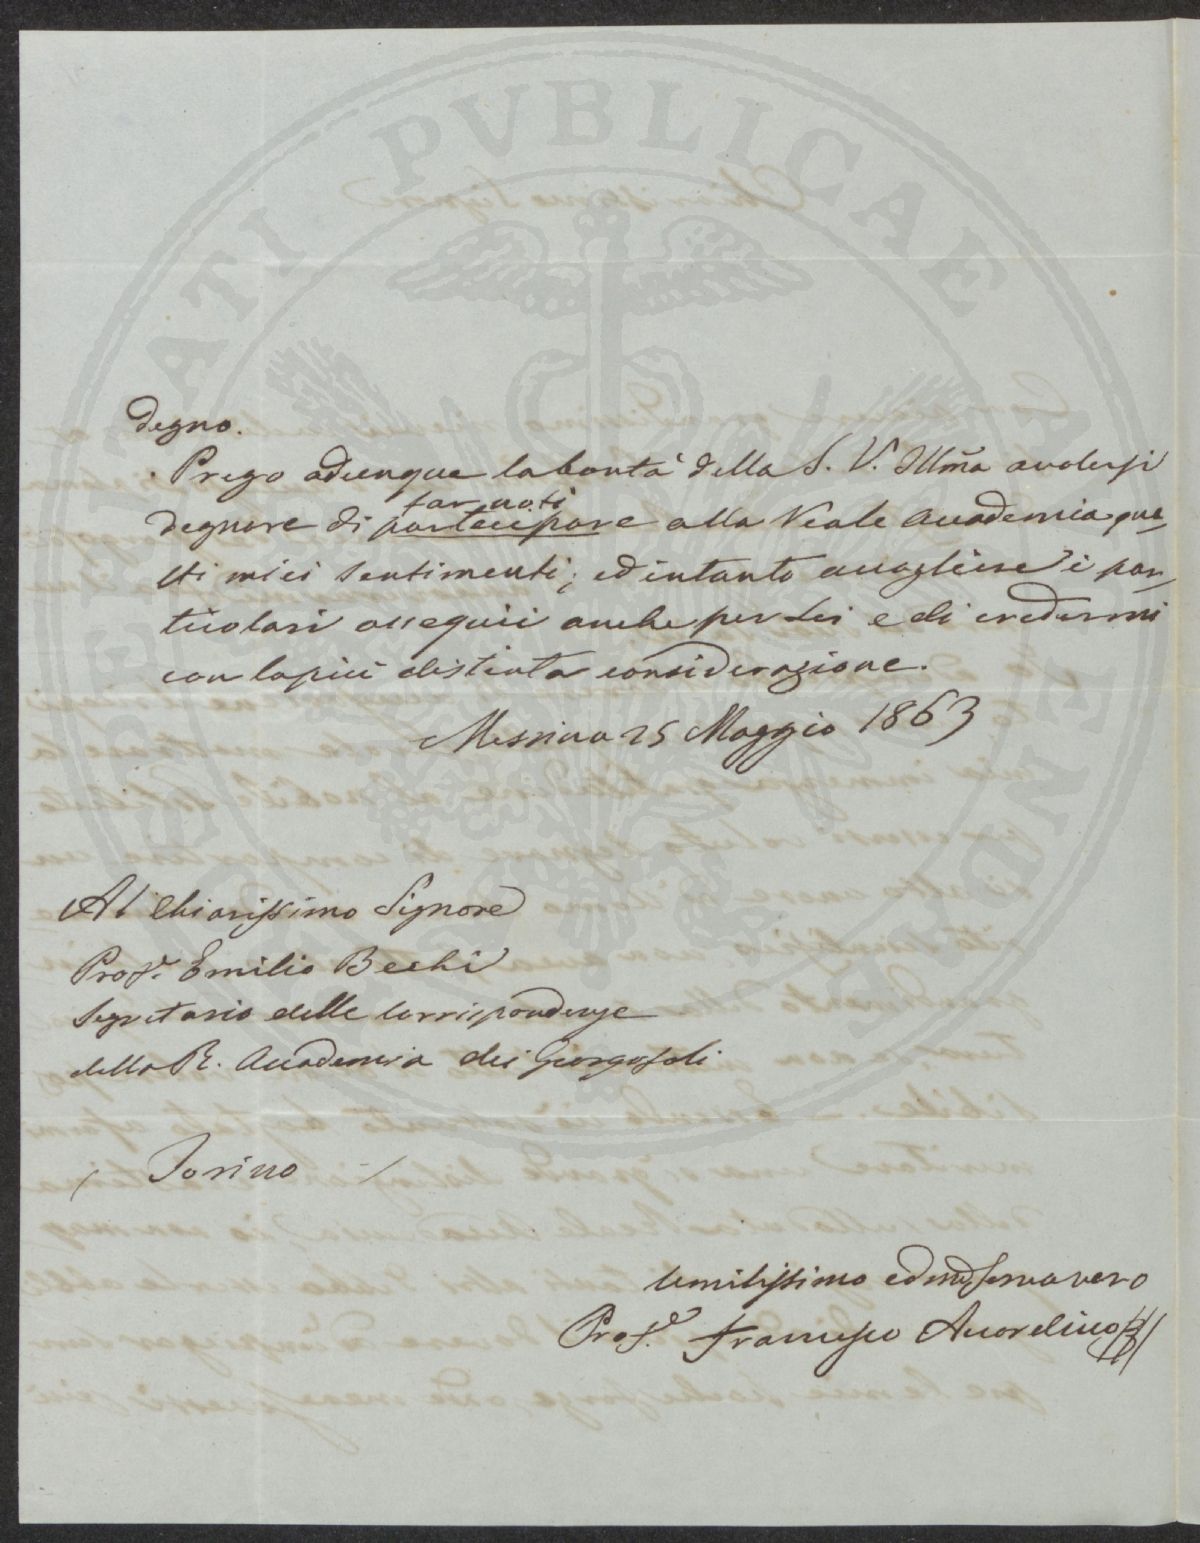 degno.
Prego adunque la bontà della S. V. Illma volersi
far noti
degnare di partecipare alla Reale Accademia que
sti miei sentimenti; ed intanto accogliere i par
ticolari ossequii anche per Lei e di credermi
con la più distinta considerazione.
Messina 25 Maggio 1863
Al Chiarissimo Signore
Prof.e Emilio Bechi
Segretario delle Corrispondenze
della R. Accademia dei Georgofili
Torino
Umilissimo ed servo vero
Prof.e Francesco